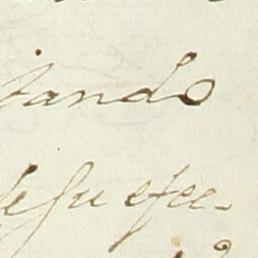 tando
de su efec-